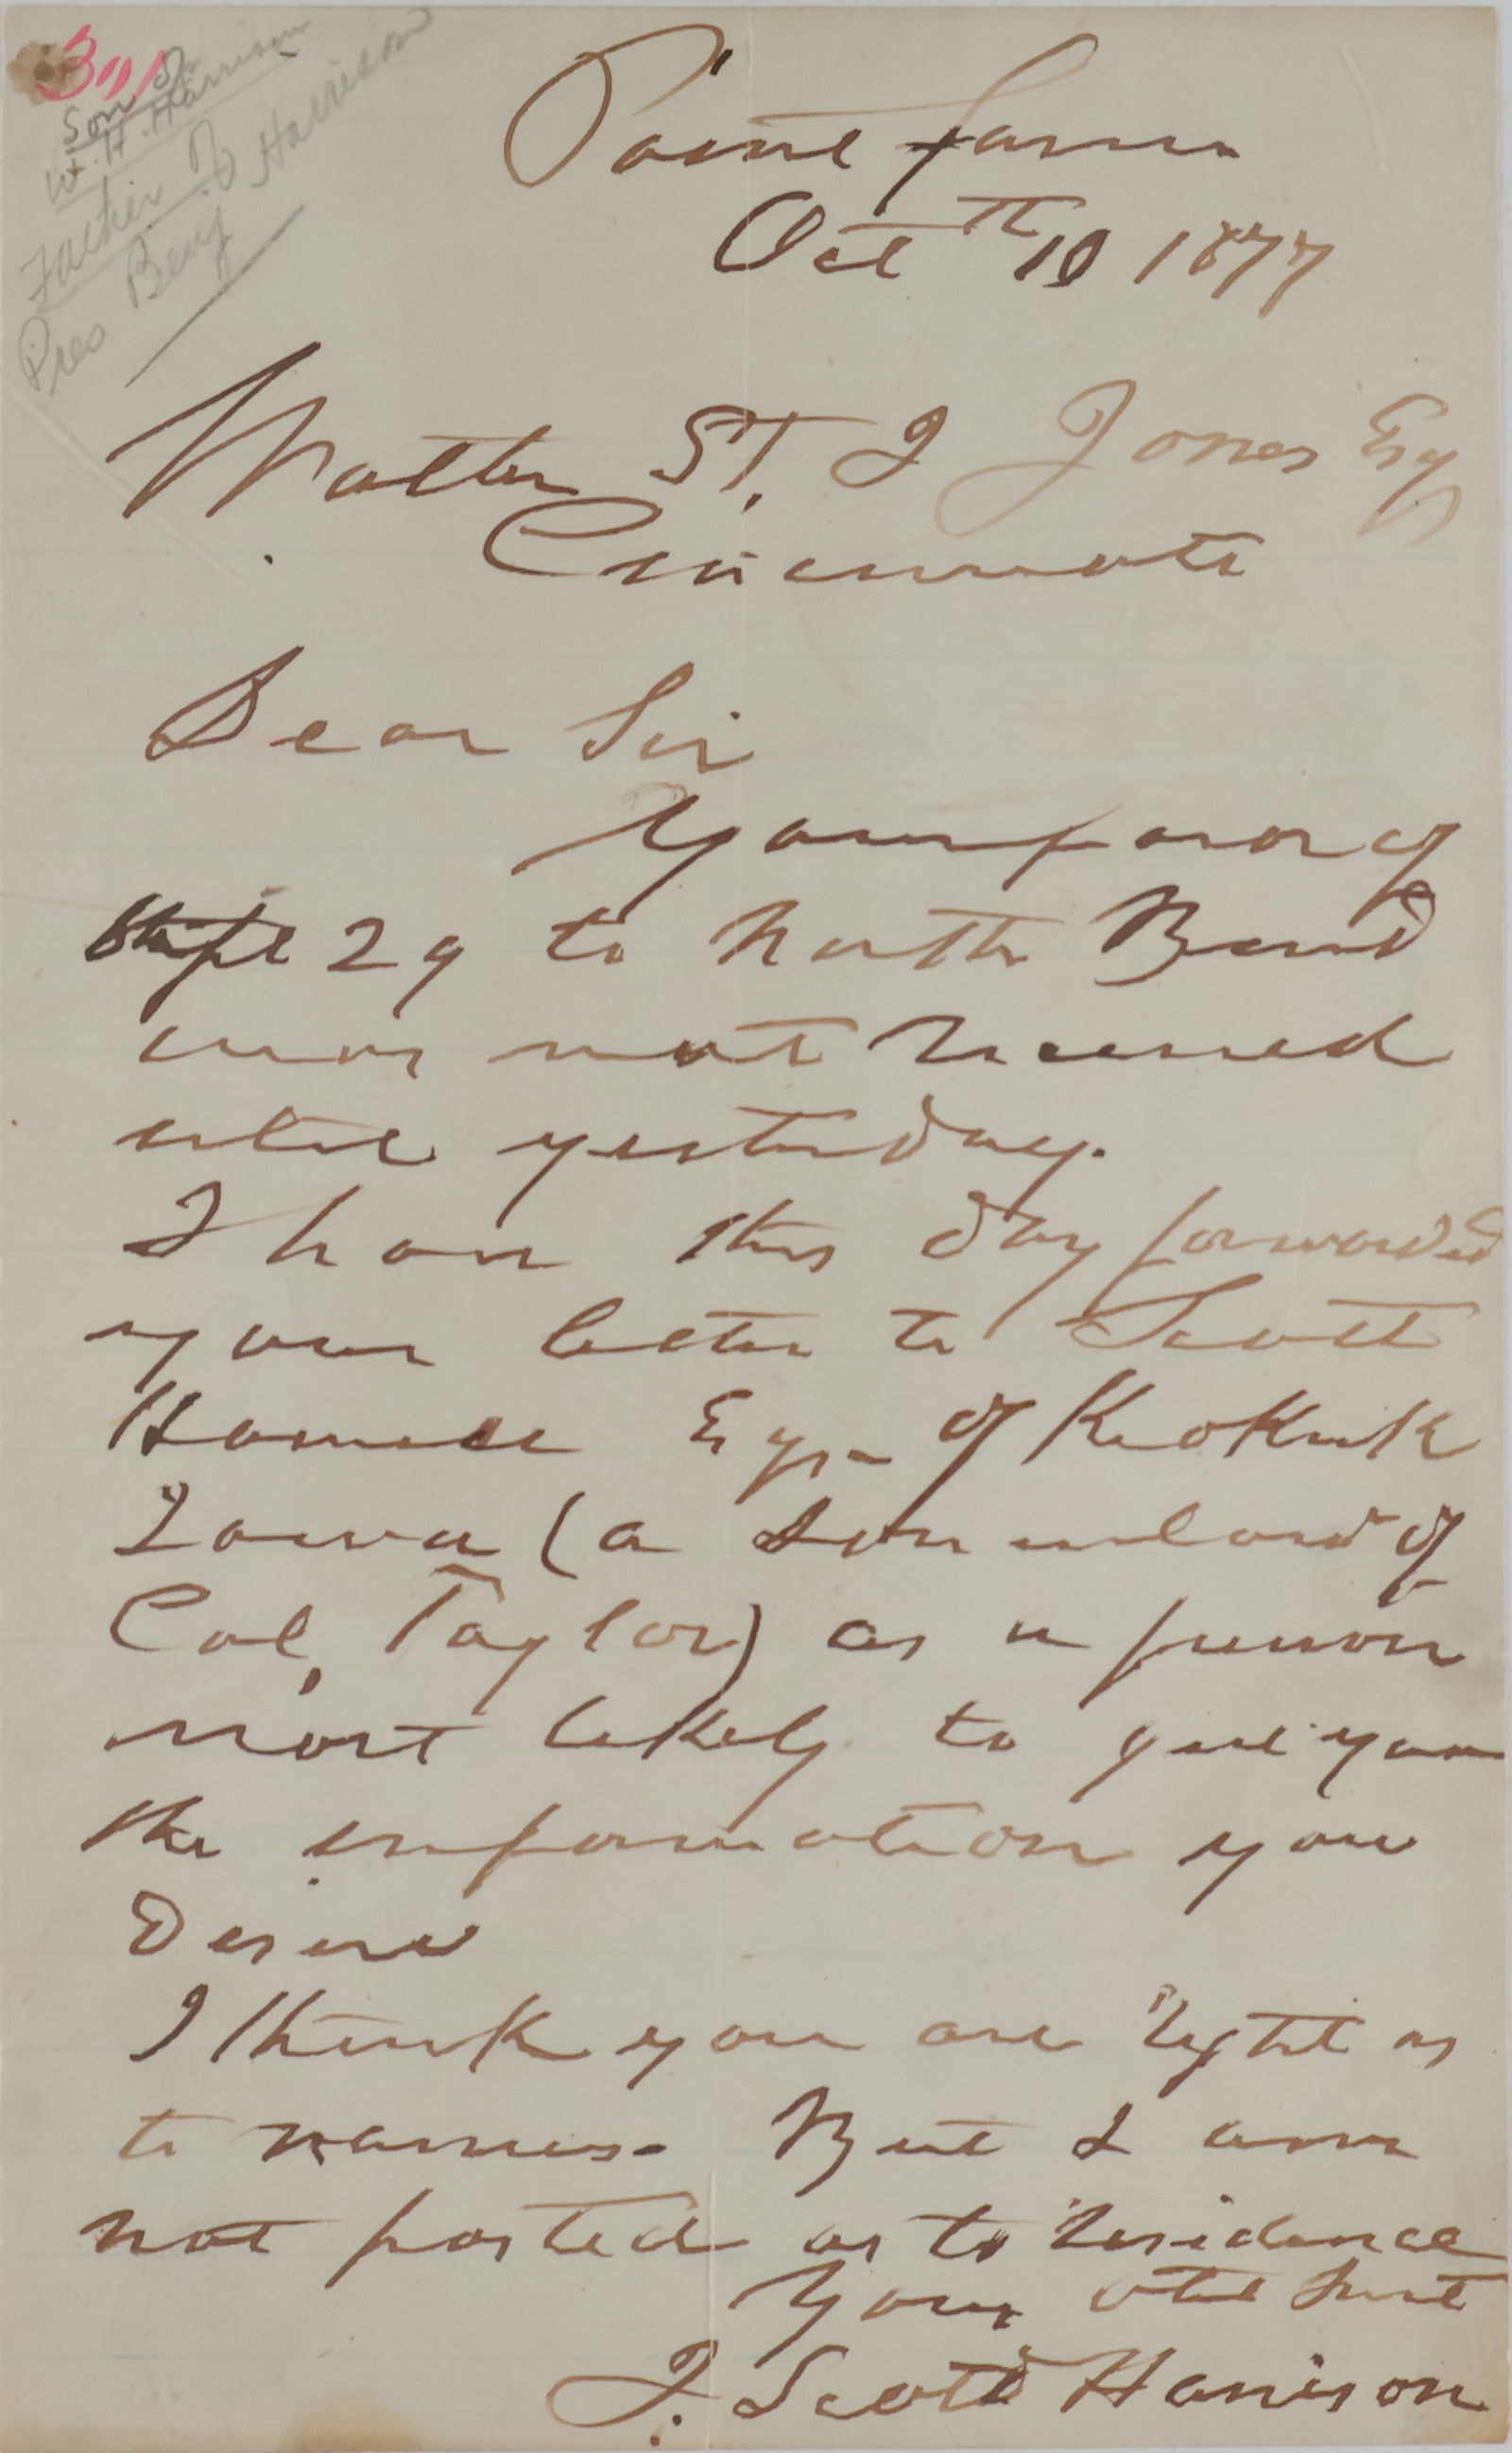 Son of
W. H. Harrison
Father of
Pres Benj Harrison
Point farm
Oct th 10 1877
Walter St. J Jones Esq
Cincinnati
Dear Sir
Your favor of
Sept 29 to North Bend
was not received
until yesterday.
I have this day forwarded
your letter to Scott
Esqr - of Keokuk
Iowa (a son in law of
Col, Taylor) as a person
most likely to give you
the information you
Desire
I think you are right as
to names - But I am
not posted as to residence
Your obt Svt
J. Scott Harrison